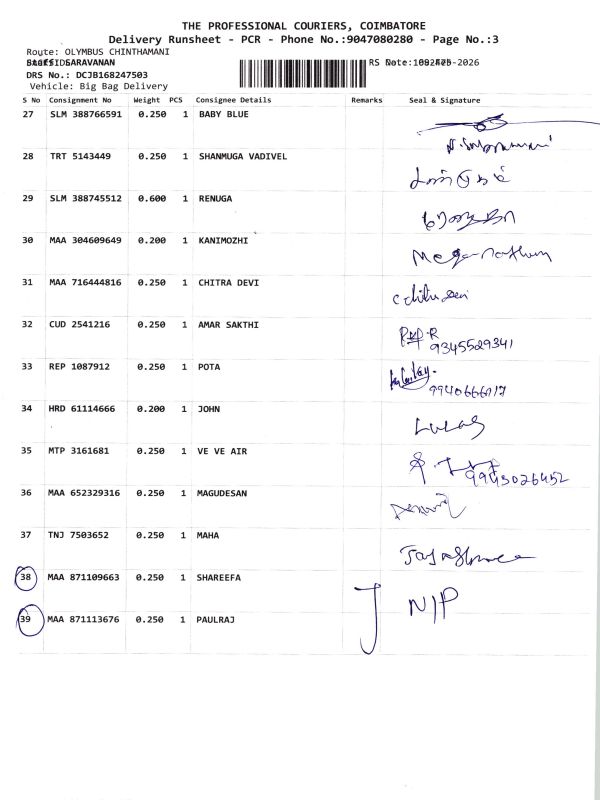 THE PROFESSIONAL COURIERS, COIMBATORE
Delivery Runsheet - PCR - Phone No.:9047080280 - Page No.:3
Route: OLYMBUS CHINTHAMANI
SARAVANAN
DRS No.: DCJB168247503
Vehicle: Big Bag Delivery
S No Consignment No Weight PCS Consignee Details Remarks Seal & Signature
27 SLM 388766591 0.250 1 BABY BLUE
28 TRT 5143449 0.250 1 SHANMUGA VADIVEL
29 SLM 388745512 0.600 1 RENUGA
30 MAA 304609649 0.200 1 KANIMOZHI
31 MAA 716444816 0.250 1 CHITRA DEVI
32 CUD 2541216 0.250 1 AMAR SAKTHI
9345529341
33 REP 1087912 0.250 1 POTA
34 HRD 61114666 0.200 1 JOHN Lucas
35 MTP 3161681 0.250 1 VE VE AIR
36 MAA 652329316 0.250 1 MAGUDESAN
37 TNJ 7503652 0.250 1 MAHA
38 MAA 871109663 0.250 1 SHAREEFA N/P
39 MAA 871113676 0.250 1 PAULRAJ